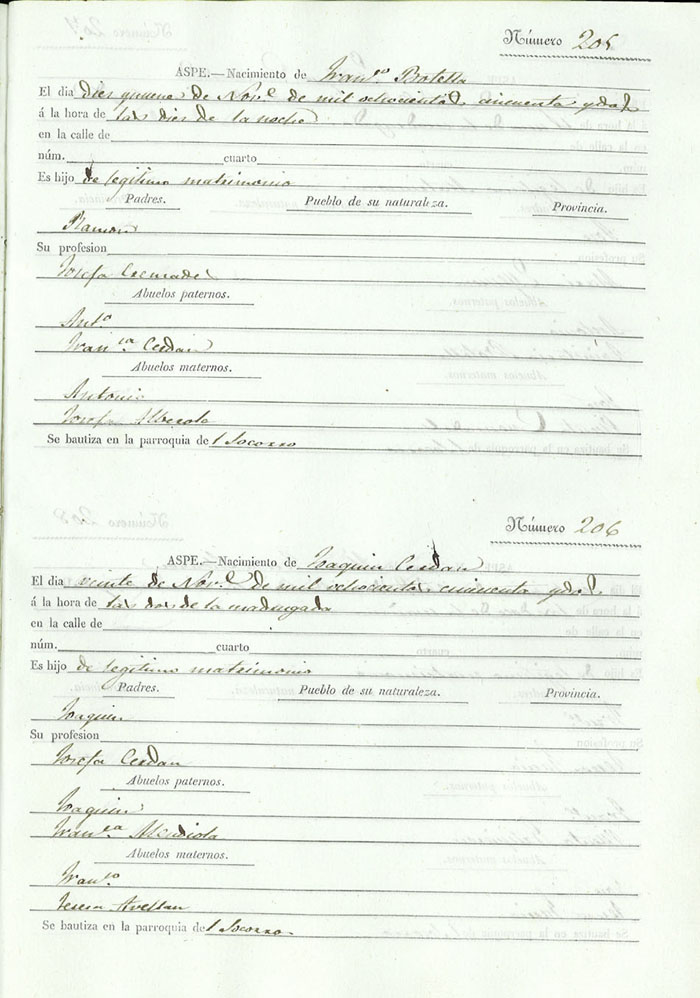 Número 205
ASPE.—Nacimiento de Fran.co Botella
El dia diez y nueve de Nov.e de mil ochocientos cincuenta y dos
á la hora de las diez de la noche
en la calle de
núm. cuarto
Es hijo de legitimo matrimonio
Padres. Pueblo de su naturaleza. Provincia.
Ramon
Su profesion
Josefa Cremades
Abuelos paternos.
Ant.o
Fran.ca Cerdan
Abuelos maternos.
Antonio
Josefa
Se bautiza en la parroquia del Socorro
Número 206
ASPE.—Nacimiento de Joaquin Cerdan
El dia veinte de Nov.e de mil ochocientos cincuenta y dos
á la hora de las dos de la madrugada
en la calle de
núm. cuarto
Es hijo de legitimo matrimonio
Padres. Pueblo de su naturaleza. Provincia.
Joaquin
Su profesion
Josefa Cerdan
Abuelos paternos.
Joaquin
Fran.ca
Abuelos maternos.
Fran.co
Teresa Avellan
Se bautiza en la parroquia del Socorro